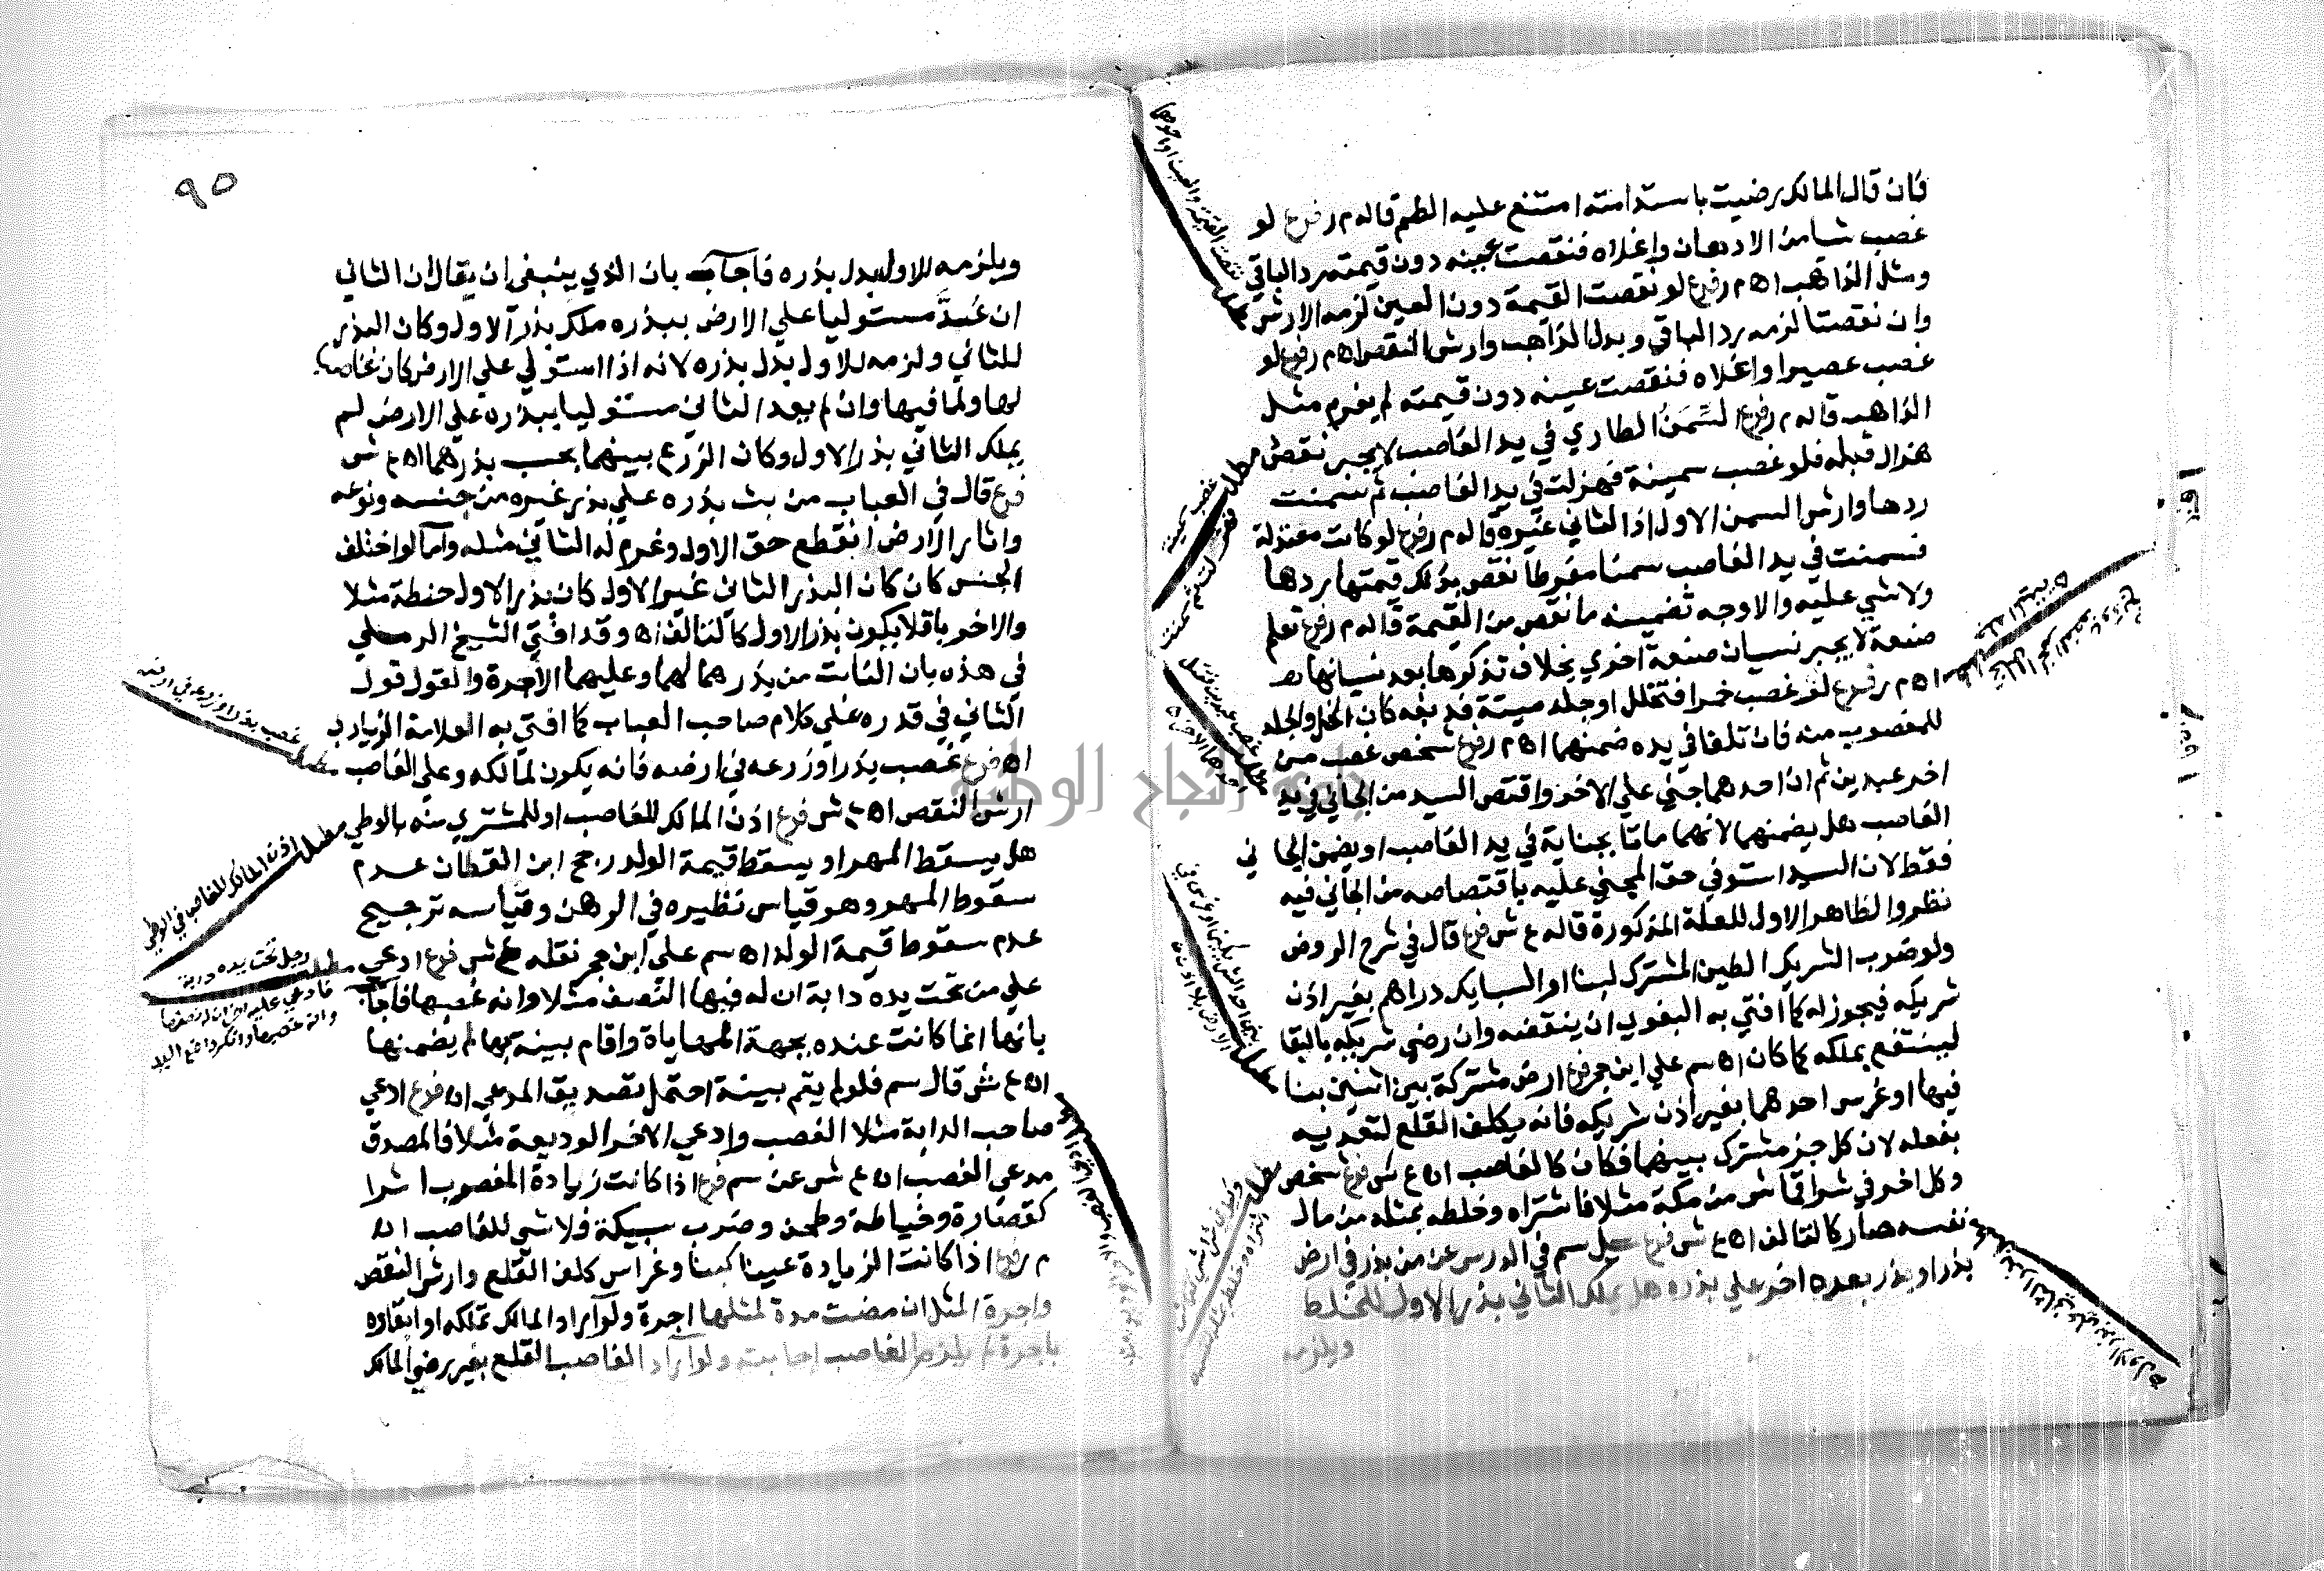 فان قال المالك رضيت باستدامته امتنع عليه الطم قاله م ر فرع لو
غصب شيا من الادهان واغلاه فنقصت عينه دون قيمته رد الباقي
ومثل الذاهب اه م ر فرع لو نقصت القيمة دون العين لزمه الارش
وان نقصتا لزمه رد الباقي وبدل الذاهب وارش النقص اه م ر فرع لو
غصب عصيرا واغلاه فنقصت عينه دون قيمته لم يغرم مثل
الذاهب قاله م ر فرع السمن الطاري في يد الغاصب لا يجبر نقص
هزال قبله فلو غصب سمينة فهزلت في يد الغاصب ثم سمنت
ردها وارش السمن الاول اذ الثاني غيره قاله م ر فرع لو كانت معتدلة
فسمنت في يد الغاصب سمنا مفرطا نقص بذلك قيمتها ردها
ولا شي عليه والاوجه تضمينه ما نقص من القيمة قاله م ر فرع تعلم
صنعة لا يجبر نسيان صنعة اخري بخلاف تذكرها بعد نسيانها
اه م ر فرع لو غصب خمرا فتخلل او جلد ميتة فدبغه كان الخل والجلد
للمغصوب منه فان تلفا في يده ضمنهما اه م ر فرع شخص غصب من
اخر عبدين ثم ان احدهما جني علي الاخر واقتص السيد من الجاني في يد
الغاصب هل يضمنهما لانهما ماتا بجناية في يد الغاصب او يضمن الجاني
فقط لان السيد استوفي حق المجني عليه باقتصاصه من الجاني فيه
نظر والظاهر الاول للعلة المذكورة قاله ع ش فرع قال في شرح الروض
ولو ضرب الشريك الطين المشترك لبنا او السبايك دراهم بغير اذن
شريكه فيجوز له كما افتي به البغوي ان ينقضه وان رضي شريكه بالبقا
لينتفع بملكه كما كان اه سم علي ابن حجر فرع ارض مشتركة بين اثنين بنا
فيها او غرس احدهما بغير اذن شريكه فانه يكلف القلع لتعديه
بفعله لان كل جز مشترك بينهما فكان كالغاصب اه ع ش فرع شخص
وكل اخر في شرا قماش من مكة مثلا فاشتراه وخلطه بمثله من مال
نفسه صار كالتالف اه ع ش فرع سيل سم في الدرس عن من بذر في ارض
بذرا وبذر بعده اخر علي بذره هل يملك الثاني بذر الاول للخلط
ويلزمه
٩٥
ويلزمه للاول بدل بذره فاجاب بان الذي ينبغي ان يقال ان الثاني
ان عُدَّ مستوليا علي الارض ببذره ملك بذر الاول وكان البذر
للثاني ولزمه للاول بدل بذره لانه اذا استولي علي الارض كان غاصبا
لها ولما فيها وان لم يعد الثاني مستوليا ببذره علي الارض لم
يملك الثاني بذر الاول وكان الزرع بينهما بحسب بذرهما اه ع ش
فرع قال في العباب من بث بذره علي بذر غيره من جنسه ونوعه
واثار الارض انقطع حق الاول وغرم له الثاني مثله واما لو اختلف
الجنس كان كان البذر الثاني غير الاول كان بذر الاول حنطة مثلا
والاخر باقلا يكون بذر الاول كالتالف اه وقد افتي الشيخ الرملي
في هذه بان النابت من بذرهما لهما وعليهما الاجرة والقول قول
الثاني في قدره علي كلام صاحب العباب كما افتي به العلامة الزيادي
اه فرع غصب بذرا وزرعه في ارضه فانه يكون لمالكه وعلي الغاصب
ارش النقص اه ع ش فرع اذن المالك للغاصب او للمشتري منه بالوطي
هل يسقط المهر او يسقط قيمة الولد رجح ابن القطان عدم
سقوط المهر وهو قياس نظيره في الرهن وقياسه ترجيح
عدم سقوط قيمة الولد اه سم علي ابن حجر نقله ع ش فرع ادعي
علي من تحت يده دابة ان له فيها النصف مثلا وانه غصبها فاجاب
بانها انما كانت عنده بجهة المهاياة واقام بينة بها لم يضمنها
اه ع ش قال سم فلو لم يقم بينة احتمل تصديق المدعي اه فرع ادعي
صاحب الدابة مثلا الغصب وادعي الاخر الوديعة مثلا فالمصدق
مدعي الغصب اه ع ش عن سم فرع اذا كانت زيادة المغصوب اثرا
كقصارة وخياطة وطحن وضرب سبيكة فلا شي للغاصب اه
م ر فرع اذا كانت الزيادة عينا كبنا وغراس كلف القلع وارش النقص
واجرة المثل ان مضت مدة لمثلها اجرة ولو اراد المالك تملكه او ابقاه
باجرة لم يلزم الغاصب اجابته ولو اراد الغاصب القلع بغير رضي المالك
مطلب غصب بذرا وزرعه في ارضه
مطلب اذن المالك للغاصب في الوطي
مطلب رجل تحت يده دابة
فادعي عليه اخر ان له نصفها
وانه غصبها وانكر واضع اليد
جامعة النجاح الوطنية